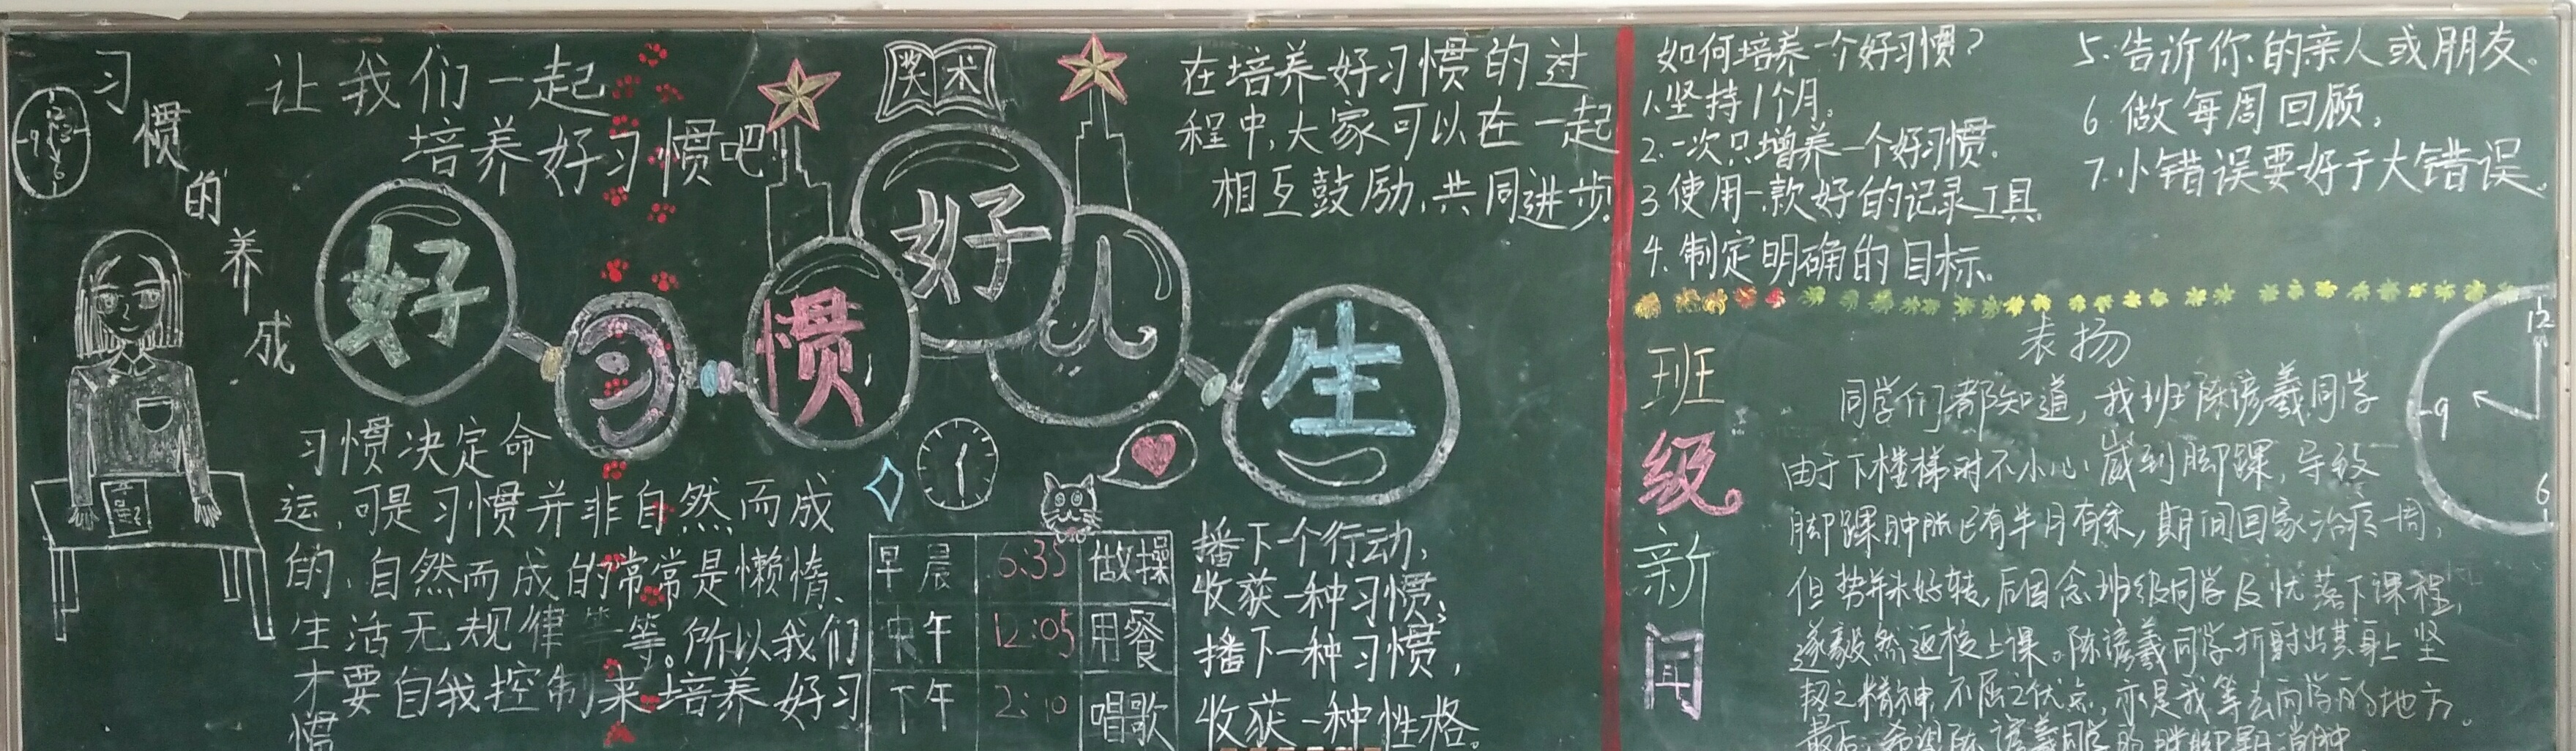 习惯的养成
12
3
6
9
让我们一起
培养好习惯吧!
好习惯好人生
习惯决定命
运,可是习惯并非自然而成
的,自然而成的常常是懒惰、
生活无规律等等。所以我们
才要自我控制来培养好习
惯
早晨 6:35 做操
中午 12:05 用餐
下午 2:10 唱歌
在培养好习惯的过
程中,大家可以在一起
相互鼓励,共同进步!
播下一个行动,
收获一种习惯;
播下一种习惯,
收获一种性格。
如何培养一个好习惯?
1.坚持1个月。
2.一次只增养一个好习惯.
3.使用一款好的记录工具.
4.制定明确的目标。
5.告诉你的亲人或朋友。
6.做每周回顾,
7.小错误要好于大错误。
班级新闻
表扬
同学们都知道,我班陈谚羲同学
由于下楼梯时不小心崴到脚踝,导致
脚踝肿胀已有半月有余,期间回家治疗一周,
但势并未好转,后因念班级同学及忧落下课程,
遂毅然返校上课。陈谚羲同学折射出其身上坚
韧之精神,不屈之优点,亦是我等去向学的地方。
12
9
6